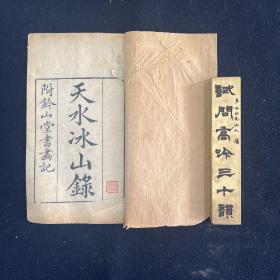 天水冰山錄
附鈐山堂書畫記
試問高吟三十韻